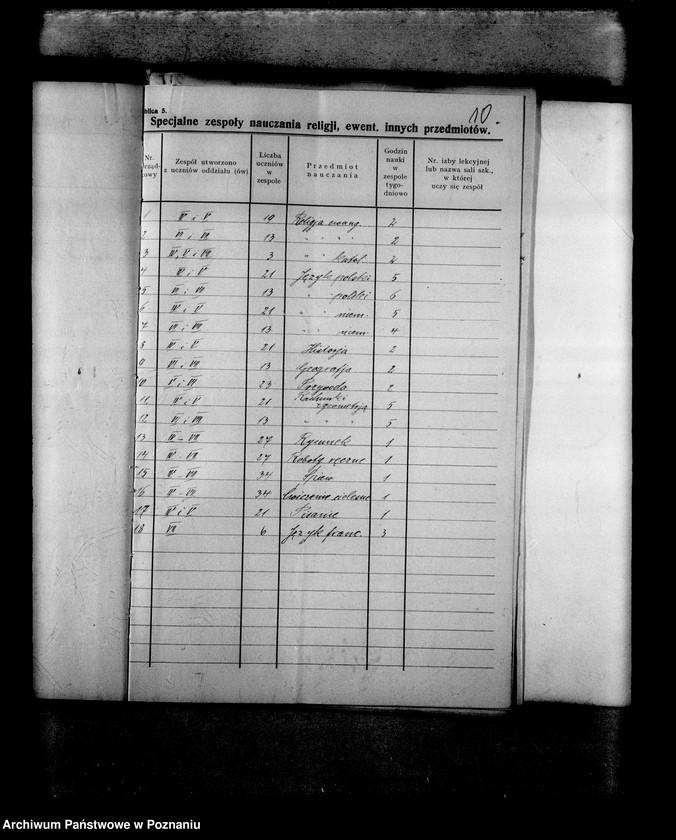 10.
blica 5.
Specjalne zespoły nauczania religji, ewent. innych przedmiotów.
Nr. rząd- kowy
Zespół utworzono z uczniów oddziału (ów)
Liczba uczniów w zespole
Przedmiot nauczania
Godzin nauki w zespole tygo- dniowo
Nr. izby lekcyjnej lub nazwa sali szk., w której uczy się zespół
1 IV i V 19 Religja ewang. 2
2 VI i VII 13 " " " 2
3 IV, V i VII 3 " katol. 2
4 IV i V 21 Język polski 5
5 VI i VII 13 " polski 6
6 IV i V 21 " " niem. 5
7 VI i VII 13 " " niem. 4
8 IV i V 21 Historja 2
9 VI i VII 13 Geografja 2
10 i VII 23 Przyroda 2
11 IV i V 21 Rachunki z geometrją 5
12 VI i VII 13 " " " 5
13 IV – VII 27 Rysunek 1
14 IV – VII 27 Roboty ręczne 1
15 IV – VII 34 Śpiew 1
16 IV – VII 34 Ćwiczenia cielesne 1
17 IV i V 21 Pisanie 1
18 VII 6 Język franc. 3
Archiwum Państwowe w Poznaniu